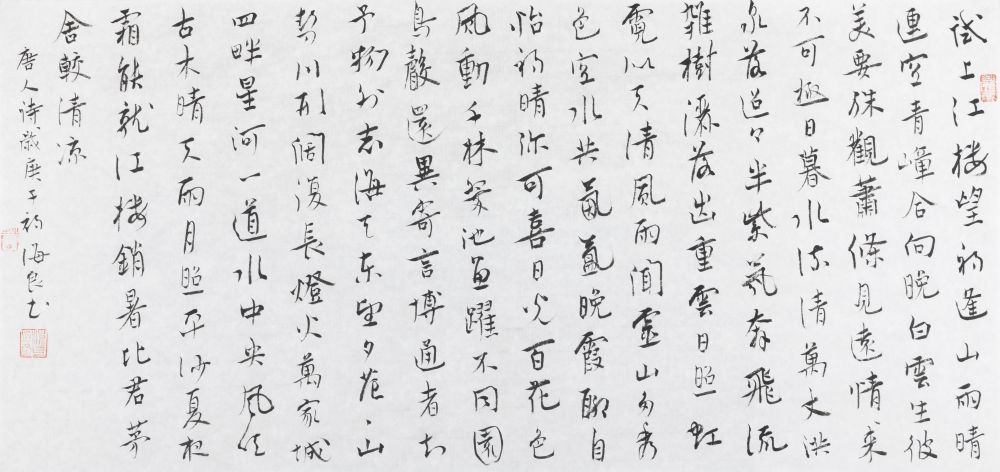 試上江樓望初逢山雨晴
連空青嶂合向晚白雲生彼
美要殊觀蕭條見遠情来
不可極日暮水流清萬丈洪
泉落迢々半紫氛奔飛流
雜樹灑落出重雲日照虹
霓似天清風雨聞靈山多秀
色空水共氤氳晚霞聊自
怡初晴弥可喜日光百花色
風動千林翠池魚躍不同園
鳥聲還異寄言博通者知
予物外志海天東望夕茫、山
勢川形闊復長燈火萬家城
四畔星河一道水中央風吹
古木晴天雨月照平沙夏夜
霜能就江樓銷暑比君茅
舍較清凉
唐人诗歲庚子初海良书